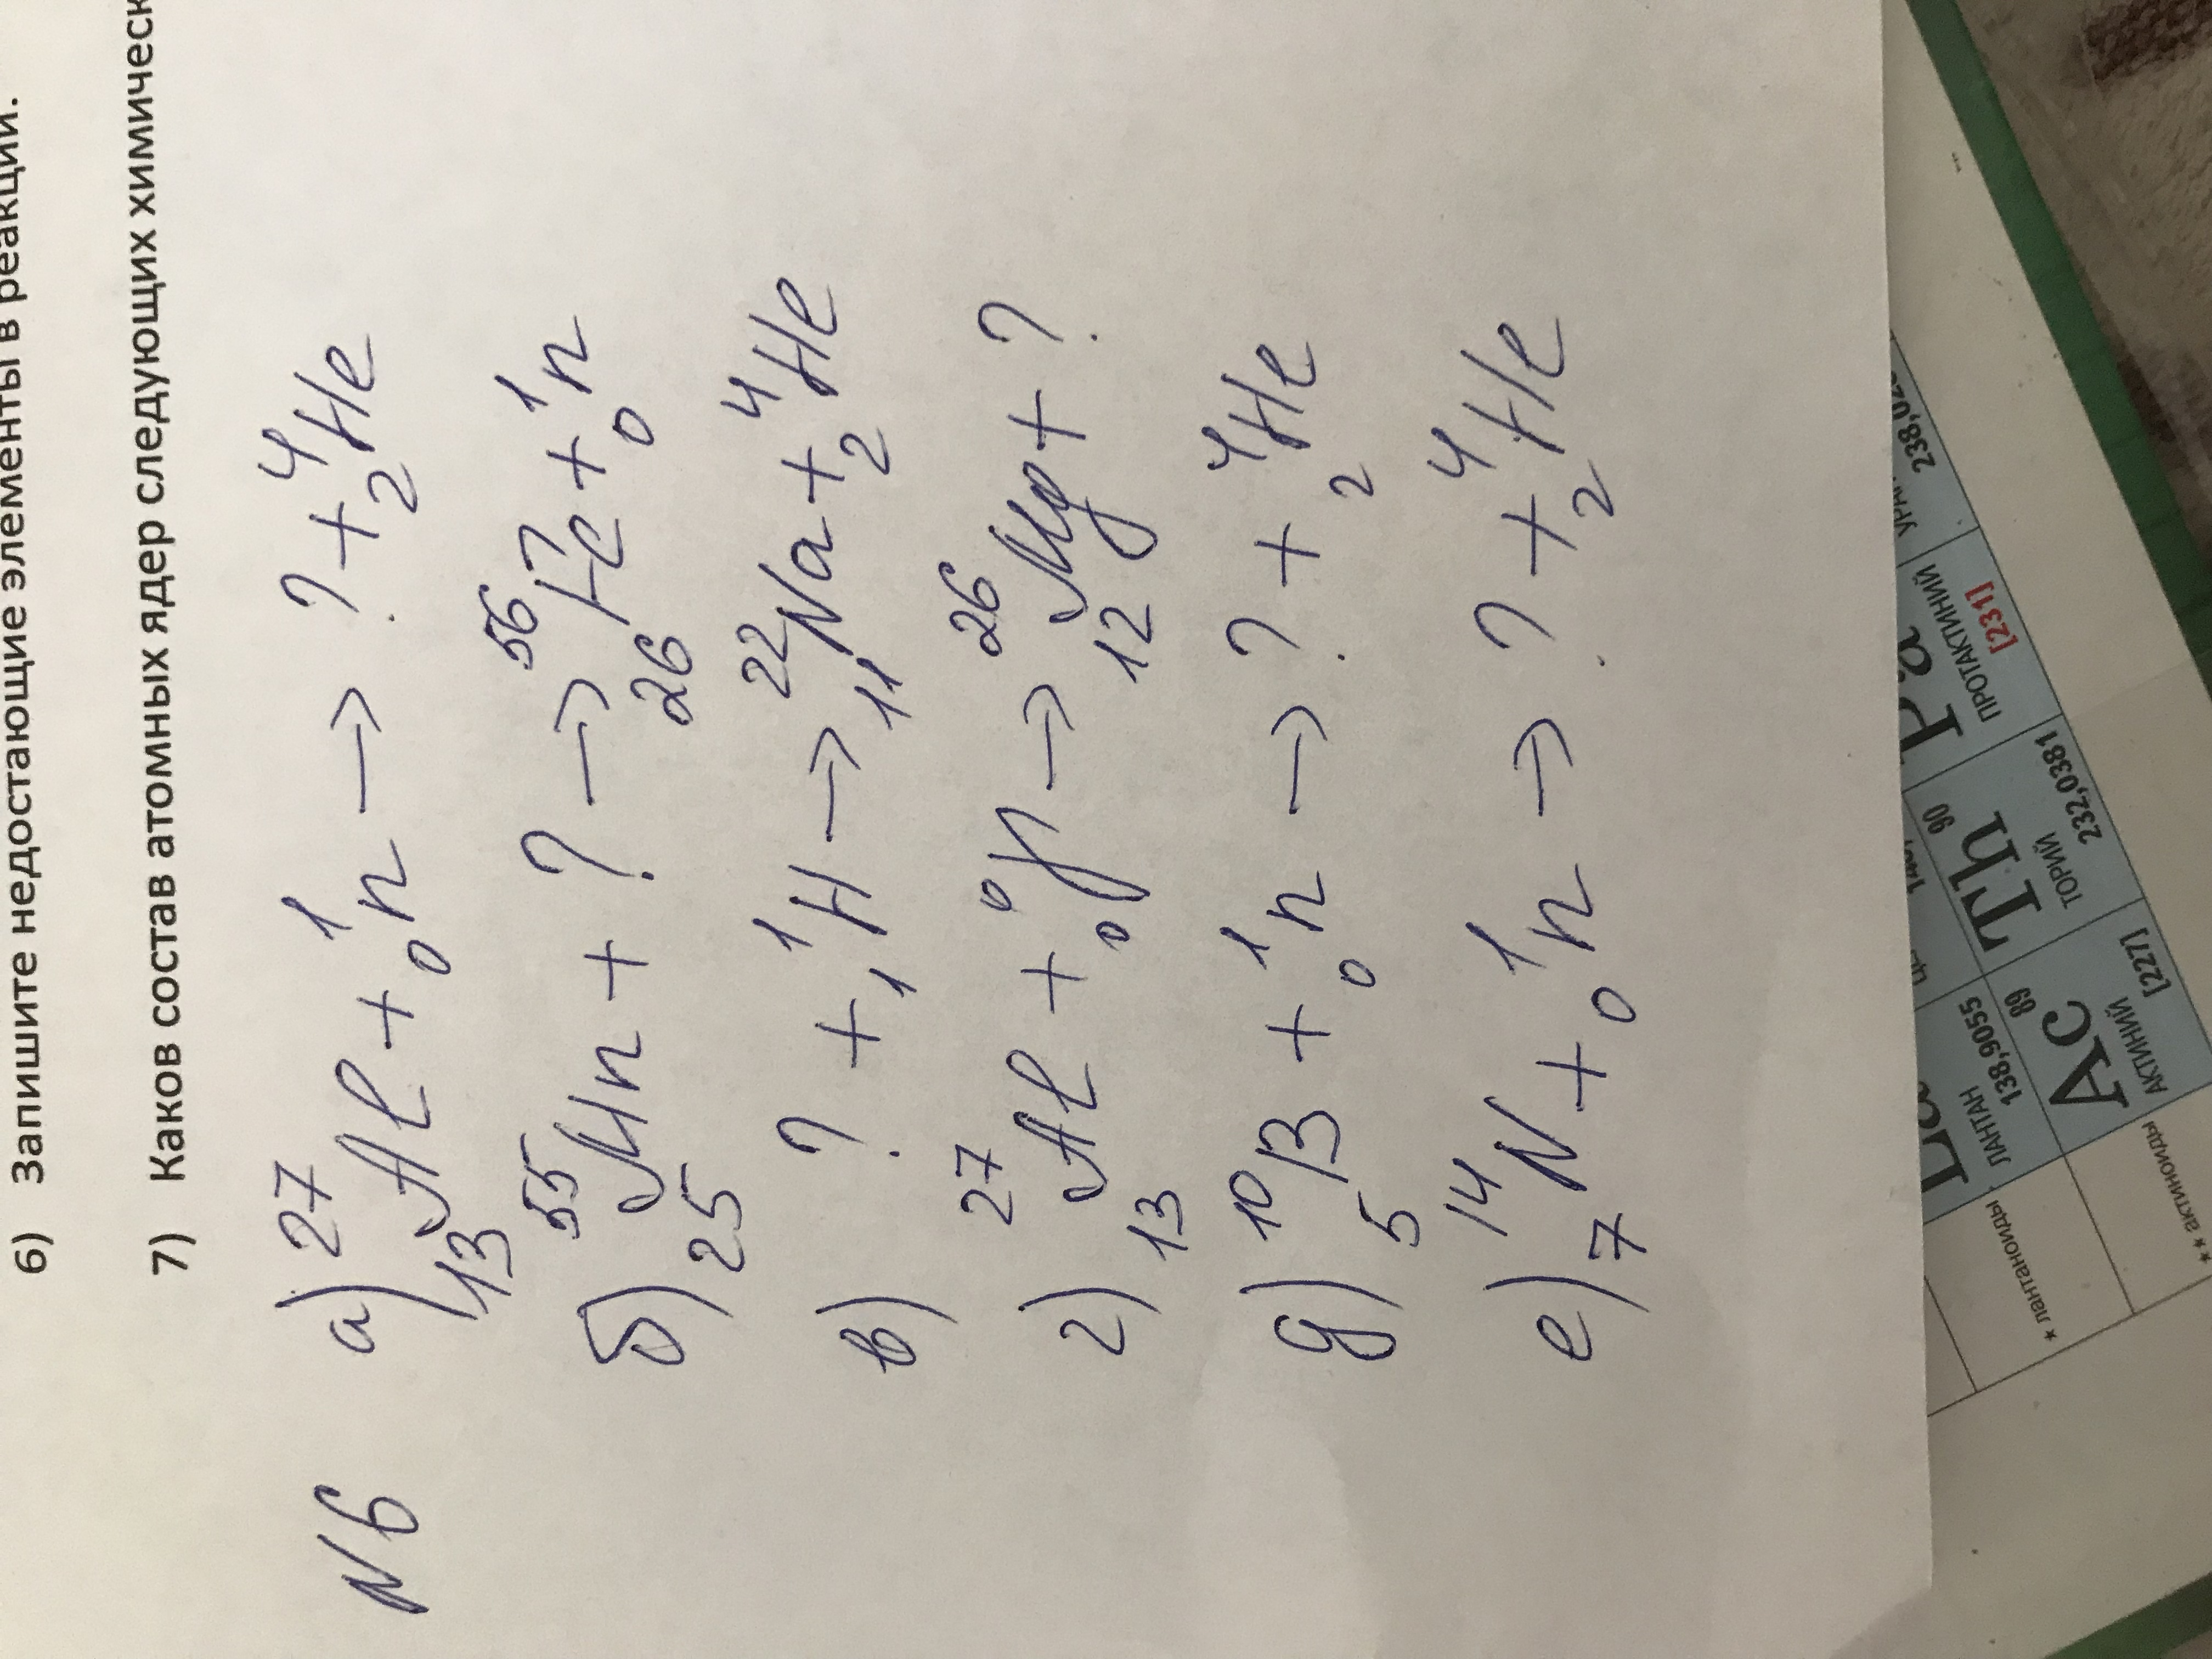 6) Запишите недостающие элементы в реакции.
7) Каков состав атомных ядер следующих
N6
а) ²⁷₁₃Al + ¹₀n → ? + ⁴₂He
б) ⁵⁵₂₅Mn + ? → ⁵⁶₂₆Fe + ¹₀n
в) ? + ¹₁H → ²²₁₁Na + ⁴₂He
г) ²⁷₁₃Al + ⁰₀γ → ²⁶₁₂Mg + ?
д) ¹⁰₅B + ¹₀n → ? + ⁴₂He
е) ¹⁴₇N + ¹₀n → ? + ⁴₂He
ЛАНТАН
138,9055
* лантаноиды
Ac 89
АКТИНИЙ
[227]
Th 90
ТОРИЙ
232,0381
Pa
ПРОТАКТИНИЙ
[231]
** актиноиды